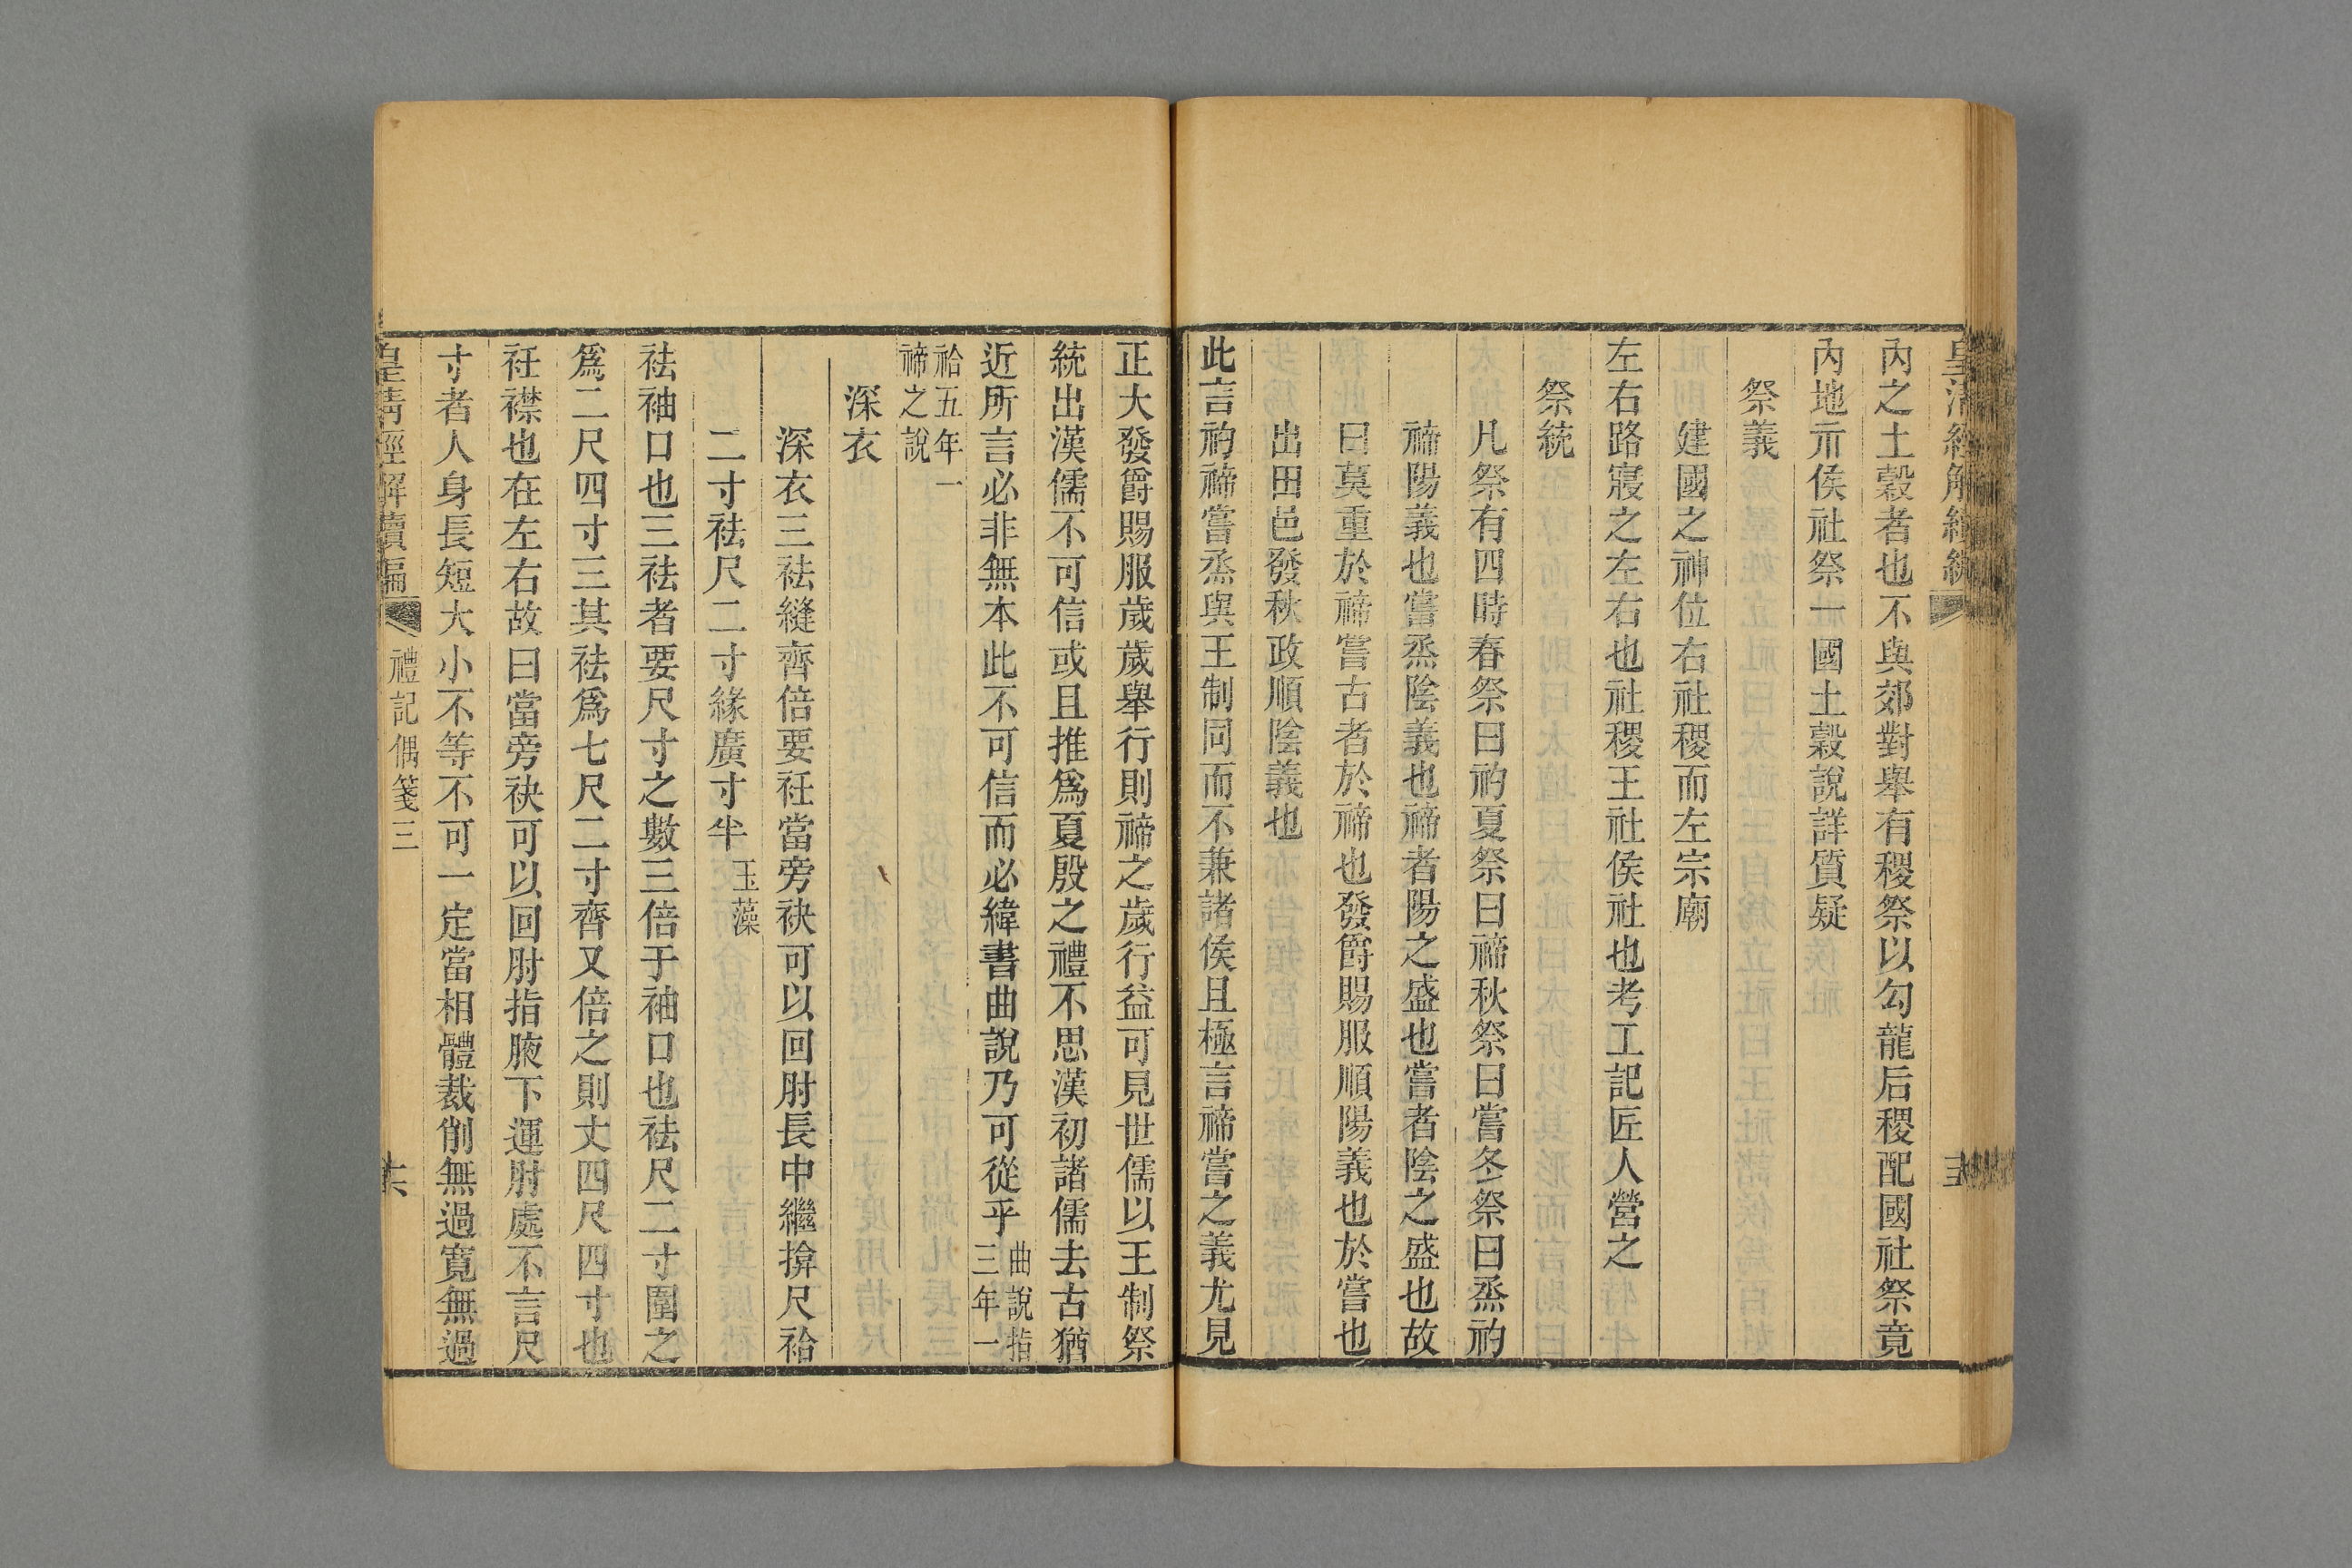 皇清經解續編
內之土穀者也不與郊對舉有稷祭以勾龍后稷配國社祭竟
內地示侯社祭一國土穀說詳質疑
祭義
建國之神位右社稷而左宗廟
左右路寢之左右也社稷王社侯社也考工記匠人營之
祭統
凡祭有四時春祭曰礿夏祭曰禘秋祭曰嘗冬祭曰烝礿
禘陽義也嘗烝陰義也禘者陽之盛也嘗者陰之盛也故
曰莫重於禘嘗古者於禘也發爵賜服順陽義也於嘗也
出田邑發秋政順陰義也
此言礿禘嘗烝與王制同而不兼諸侯且極言禘嘗之義尤見
正大發爵賜服歲歲舉行則禘之歲行益可見世儒以王制祭
統出漢儒不可信或且推爲夏殷之禮不思漢初諸儒去古猶
近所言必非無本此不可信而必緯書曲說乃可從乎曲說指三年一
祫五年一禘之說
深衣
深衣三袪縫齊倍要衽當旁袂可以回肘長中繼揜尺袷
二寸袪尺二寸緣廣寸半玉藻
袪袖口也三袪者要尺寸之數三倍于袖口也袪尺二寸圍之
爲二尺四寸三其袪爲七尺二寸齊又倍之則丈四尺四寸也
衽襟也在左右故曰當旁袂可以回肘指腋下運肘處不言尺
寸者人身長短大小不等不可一定當相體裁削無過寬無過
皇清經解續編 禮記偶箋三 六